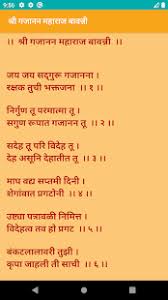 9:50
श्री गजानन महाराज बावन्नी
।। श्री गजानन महाराज बावन्नी ।।
जय जय सद्गुरू गजानना ।
रक्षक तुची भक्तजना ।। १ ।।
निर्गुण तू परमात्मा तू ।
सगुण रूपात गजानन तू ।। २ ।।
सदेह तू परि विदेह तू ।
देह असूनि देहातीत तू ।। ३ ।।
माघ वद्य सप्तमी दिनी ।
शेगांवात प्रगटोनी ।। ४ ।।
उष्ट्या पत्रावळी निमित्त ।
विदेहत्व तव हो प्रगट ।। ५ ।।
बंकटलालावरी तुझी ।
कृपा जाहली ती साची ।। ६ ।।